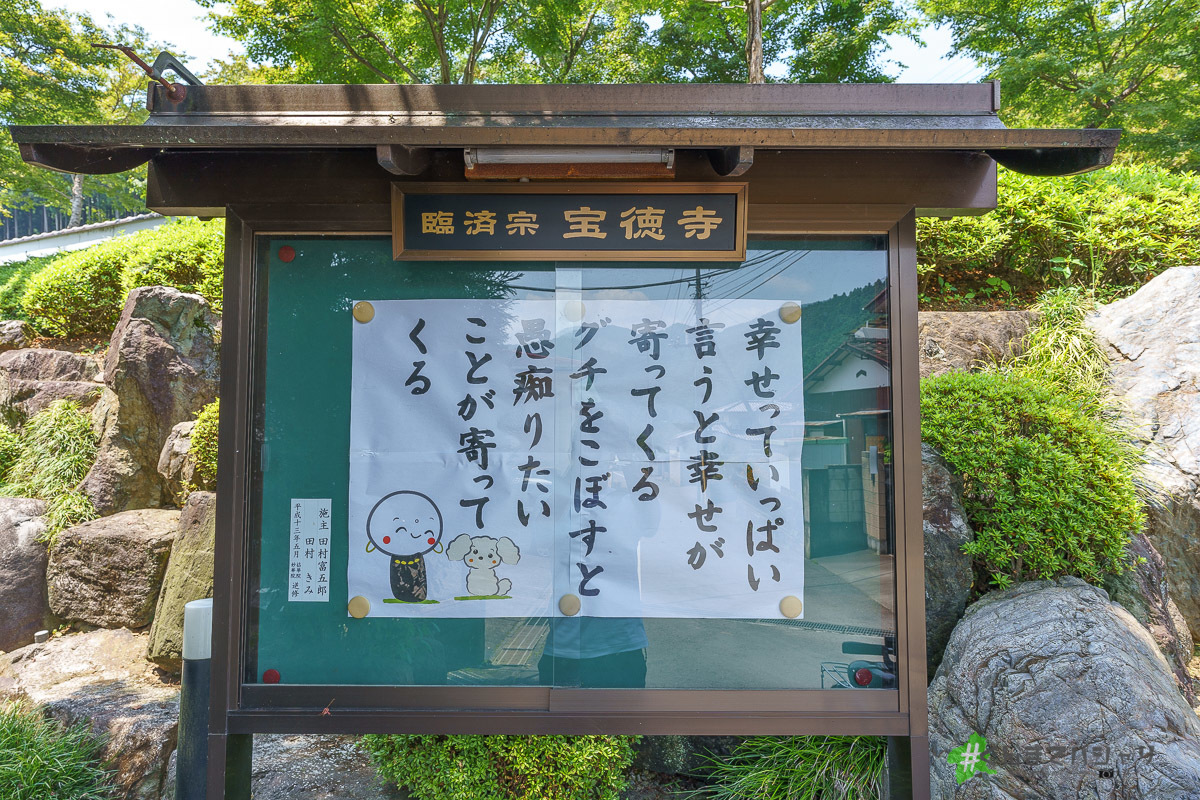 臨済宗 宝徳寺
幸せっていっぱい
言うと幸せが
寄ってくる
グチをこぼすと
愚痴りたい
ことが寄って
くる
施主 田村富五郎
田村 きみ
平成十三年五月
逆修